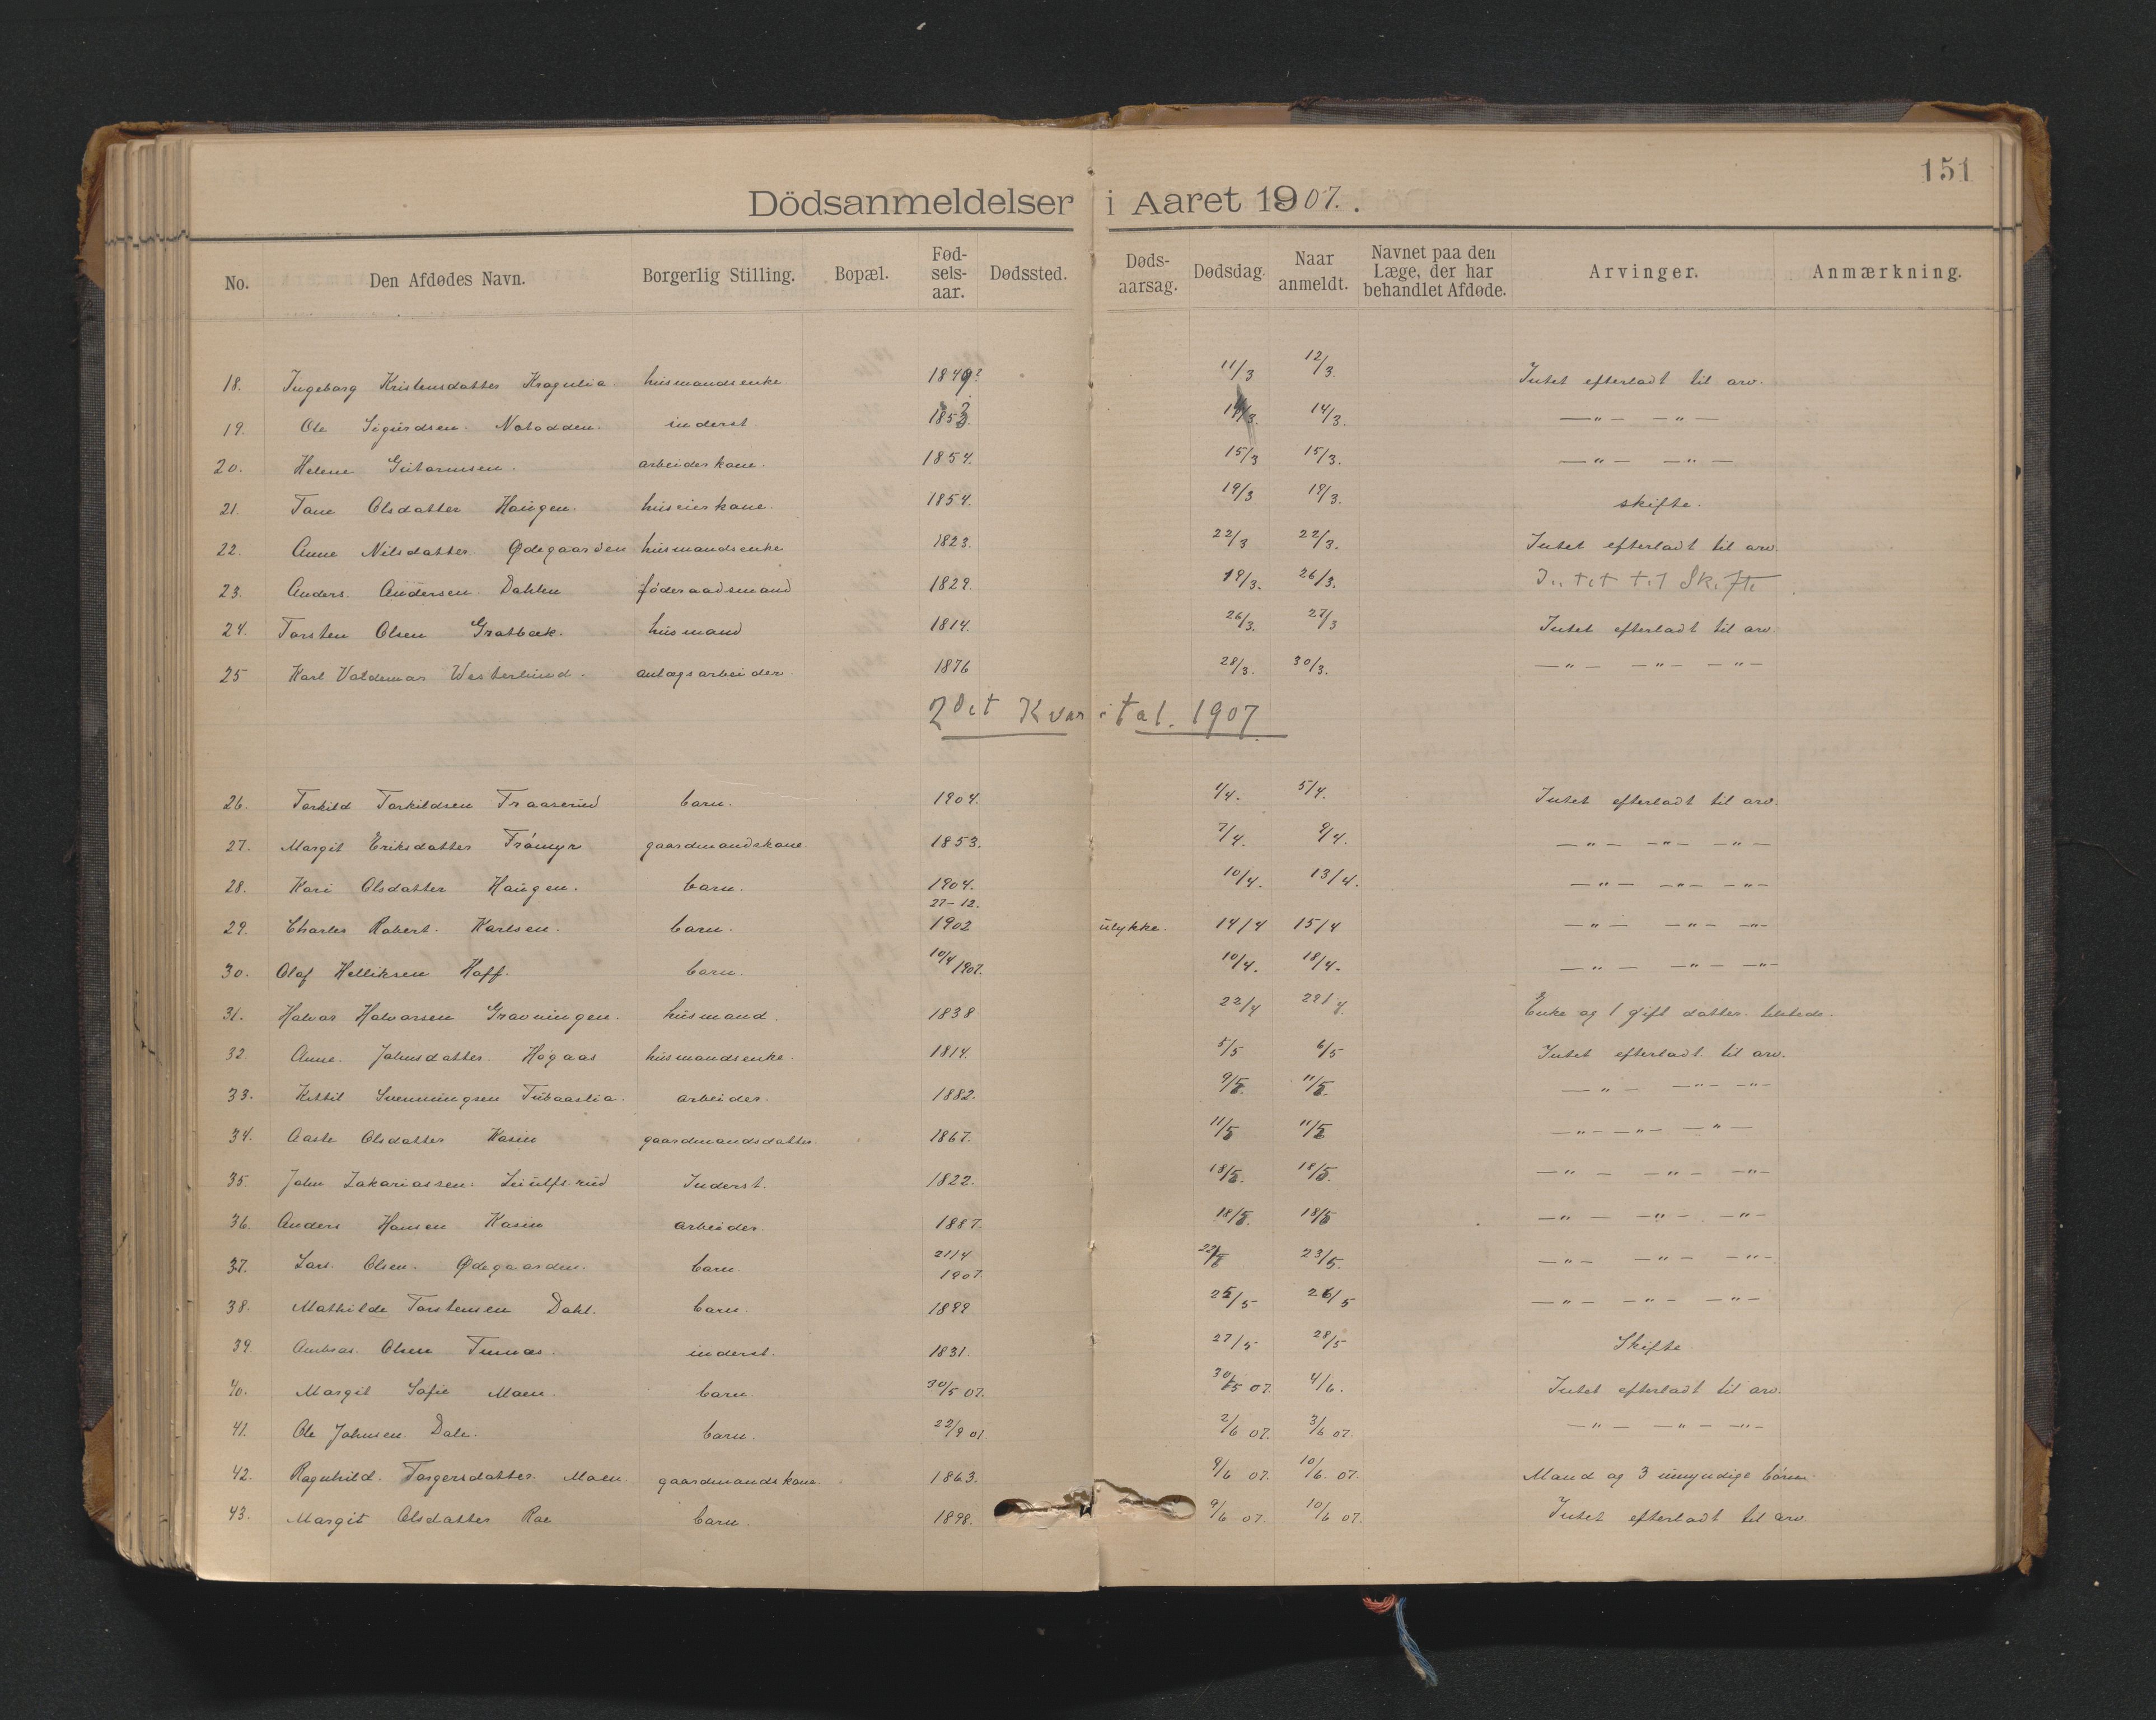 151
Dödsanmeldelser i Aaret 1907.
No. Den Afdødes Navn. Borgerlig Stilling. Bopæl. Fød-sels-aar. Dødssted. Døds-aarsag. Dødsdag. Naar anmeldt. Navnet paa den Læge, der har behandlet Afdøde. Arvinger. Anmærkning.
18. Ingeborg Kristensdatter husmandsenke 1849? 11/3 12/3. Intet efterladt til arv.
19. Ole Sigurdsen Notodden. inderst 1853. 14/3. — " — — " —
20. Helene Gutormsen. arbeiderkone. 1854. 15/3 15/3. — " — — " —
21. Tone Olsdatter Haugen. huseierkone. 1854. 19/3 19/3. skifte.
22. Anne Nilsdatter Ødegaarden husmandsenke 1823. 22/3 22/3. Intet efterladt til arv.
23. Anders Andersen Dahlen føderaadsmand 1829. 19/3. 26/3. Intet til Skifte
24. Torsten Olsen Grotbæk. husmand 1814. 26/3. 27/3 Intet efterladt til arv.
25 Karl Valdemar Westerlund. anlægsarbeider. 1876 28/3. 30/3. — " — — " — — " —
2det Kvartal. 1907
26. Torkild Torkildsen Traaserud barn. 1904. 4/4. 5/4. Intet efterladt til arv.
27. Margit Eriksdatter Frömyr gaardmandskone. 1853. 7/4. 9/4. — " — — " — — " —
28. Kari Olsdatter Haugen. barn. 1904. 10/4. 13/4. — " — — " — — " —
29. Charles Robert. Karlsen. barn. 27-12. 1902 ulykke. 14/4 15/4 — " — — " — — " —
30. Olaf Helliksen Hoff. barn. 10/4 1907. 10/4. 18/4. — " — — " — — " —
31. Halvor Halvorsen Gravningen. husmand. 1838 22/4 22/4. Enke og 1 gift datter. tilstede.
32. Anne. Johnsdatter. Hogaas husmandsenke. 1814. 5/5 6/5 Intet efterladt til arv.
33. Kittil Svenningsen Tubaaslia. arbeider. 1882. 9/5. 11/5. — " — — " — — " —
34. Aaste Olsdatter Kasin gaardmandsdatter. 1867. 11/5 11/5 — " — — " — — " —
35. John Zakariassen. Inderst. 1822. 18/5. 18/5. — " — — " — — " —
36. Anders Hansen Kasin arbeider. 1887. 18/5. 18/5 — " — — " — — " —
37. Lars Olsen. Ødegaarden. barn 21/4 1907. 22/5 23/5. — " — — " — — " —
38. Mathilde Torstensen Dahl. barn. 1899 25/5 26/5 — " — — " — — " —
39. Andreas Olsen inderst. 1831. 27/5 28/5 Skifte
40. Margit Sofie Moen. barn 30/5 07. 30/5 07. 4/6. Intet efterladt til arv.
41. Ole Johnsen. Dale. barn. 22/9 01. 2/6 07. 3/6 07. — " — — " — — " —
42. Ragnhild. Torgersdatter. Moen. gaardmandskone 1863. 9/6 07. 10/6. 07. Mand og 3 umyndige börn.
43. Margit Olsdatter Roe barn. 1898. 9/6 07. 10/6 07. Intet efterladt til arv.